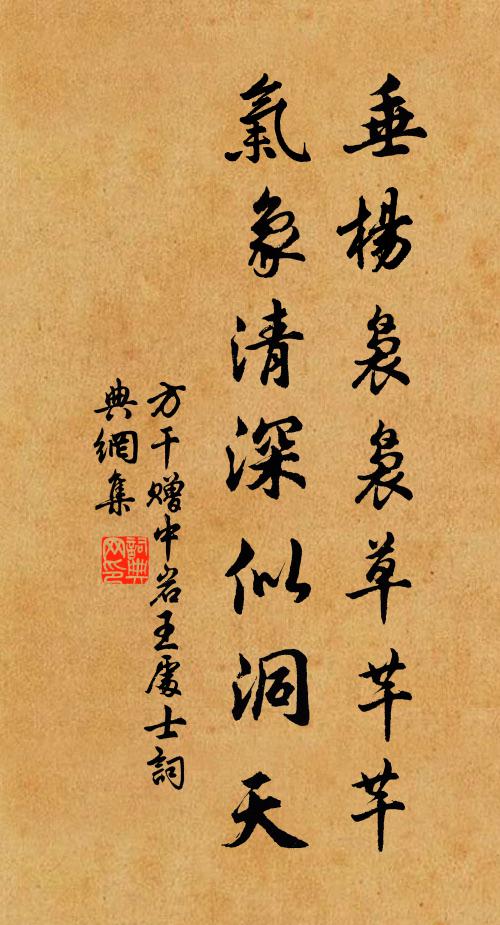 垂楊裊裊草芊芊
氣象清深似洞天
方干贈中岩王處士詞
典網集
詞典網印